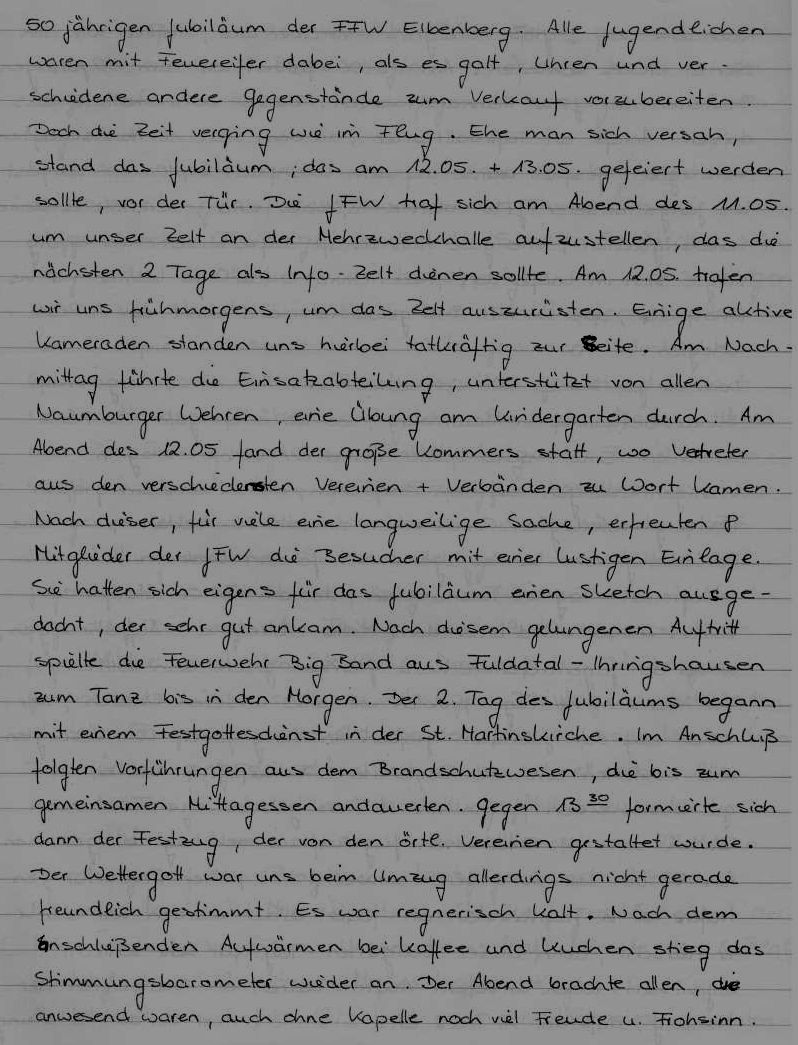 50 jährigen Jubiläum der FFW Elbenberg. Alle Jugendlichen
waren mit Feuereifer dabei, als es galt, Uhren und ver -
schiedene andere Gegenstände zum Verkauf vorzubereiten.
Doch die Zeit verging wie im Flug. Ehe man sich versah,
stand das Jubiläum, das am 12.05. + 13.05. gefeiert werden
sollte, vor der Tür. Die JFW traf sich am Abend des 11.05.
um unser Zelt an der Mehrzweckhalle aufzustellen, das die
nächsten 2 Tage als Info - Zelt dienen sollte. Am 12.05. trafen
wir uns frühmorgens, um das Zelt auszurüsten. Einige aktive
Kameraden standen uns hierbei tatkräftig zur Seite. Am Nach -
mittag führte die Einsatzabteilung, unterstützt von allen
Naumburger Wehren, eine Übung am Kindergarten durch. Am
Abend des 12.05 fand der große Kommers statt, wo Vetreter
aus den verschiedensten Vereinen + Verbänden zu Wort kamen.
Nach dieser, für viele eine langweilige Sache, erfreuten 8
Mitglieder der JFW die Besucher mit einer lustigen Einlage.
Sie hatten sich eigens für das Jubiläum einen Sketch ausge -
dacht, der sehr gut ankam. Nach diesem gelungenen Auftritt
spielte die Feuerwehr Big Band aus Fuldatal - Ihringshausen
zum Tanz bis in den Morgen. Der 2. Tag des Jubiläums begann
mit einem Festgottesdienst in der St. Martinskirche. Im Anschluß
folgten Vorführungen aus dem Brandschutzwesen, die bis zum
gemeinsamen Mittagessen andauerten. Gegen 13 30 formierte sich
dann der Festzug, der von den örtl. Vereinen gestaltet wurde.
Der Wettergott war uns beim Umzug allerdings nicht gerade
freundlich gestimmt. Es war regnerisch kalt. Nach dem
anschließenden Aufwärmen bei Kaffee und Kuchen stieg das
Stimmungsbarometer wieder an. Der Abend brachte allen, die
anwesend waren, auch ohne Kapelle noch viel Freude u. Frohsinn.